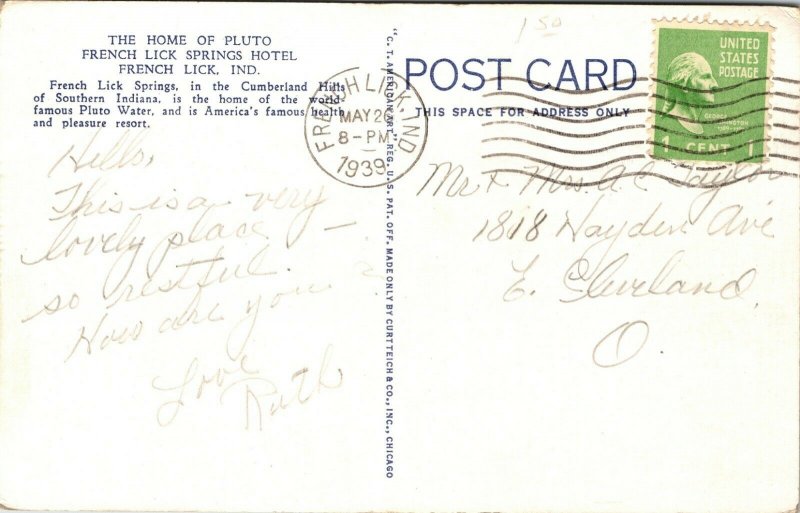 THE HOME OF PLUTO
FRENCH LICK SPRINGS HOTEL
FRENCH LICK, IND.
French Lick Springs, in the Cumberland Hills
of Southern Indiana, is the home of the world-
famous Pluto Water, and is America's famous health
and pleasure resort.
Hello,
This is a very
lovely place —
so restful.
How are you?
Love
Ruth
"C. T. AMERICAN ART" REG. U. S. PAT. OFF. MADE ONLY BY CURT TEICH & CO., INC., CHICAGO
FRENCH LICK, IND
MAY 20
8-PM
1939
1 50
POST CARD
THIS SPACE FOR ADDRESS ONLY
UNITED
STATES
POSTAGE
GEORGE WASHINGTON
1 CENT 1
Mr + Mrs. A C Taylor
1818 Hayden Ave
E. Cleveland,
O.